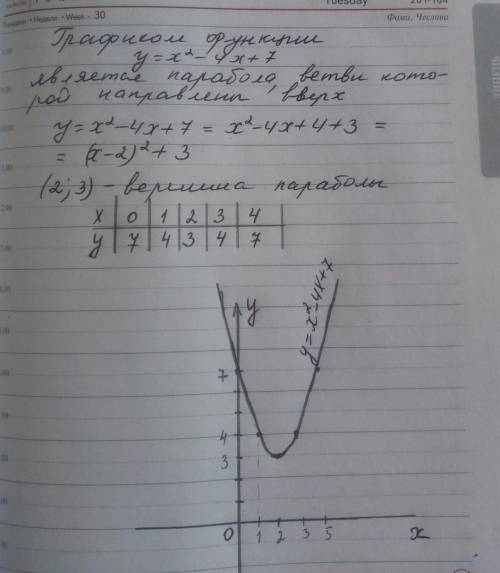 Tuesday
Неделя • Week • 30
Фами, Чеслива
Графиком функции
y = x² - 4x + 7
является парабола, ветви кото-
рой направлены вверх
y = x² - 4x + 7 = x² - 4x + 4 + 3 =
= (x - 2)² + 3
(2; 3) - вершина параболы
x | 0 | 1 | 2 | 3 | 4 |
y | 7 | 4 | 3 | 4 | 7 |
y
y = x² - 4x + 7
7
4
3
0 1 2 3 5 x